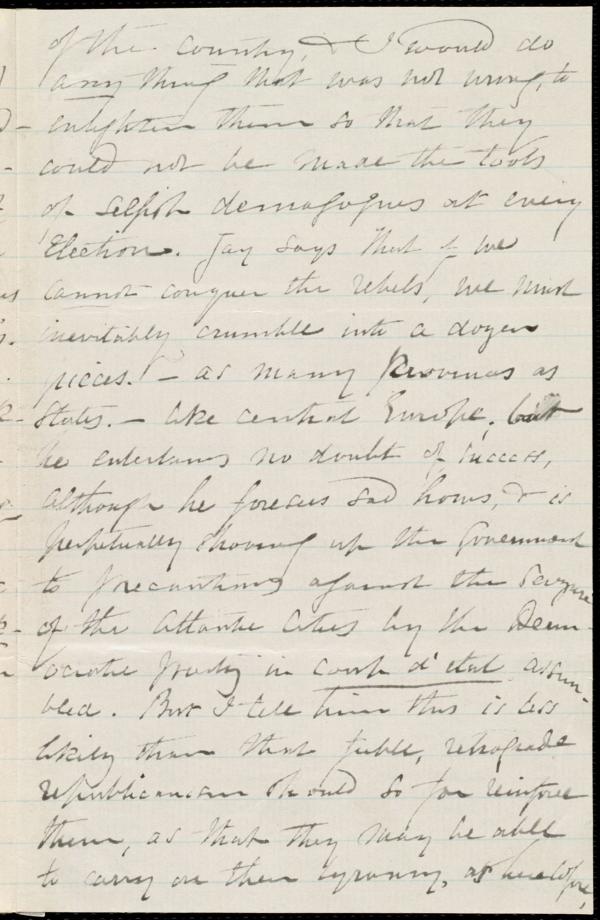 of the country, & I would do
anything that was not wrong, to
enlighten them so that they
could not be made the tools
of selfish demagogues at every
Election. Jay says that if we
cannot conquer the rebels, we must
inevitably crumble into a dozen
pieces. - as many Provinces as
States. - like central Europe, but
he entertains no doubt of success,
although he foresees sad hours, & is
perpetually shoving up the Government
to precautions against the seizure
of the Atlantic cities by the Dem-
ocratic party in coup d'etat assem-
bled. But I tell him this is less
likely than that feeble, retrograde
republicanism should so far reinforce
them, as that they may be able
to carry on their tyranny, as heretofore,